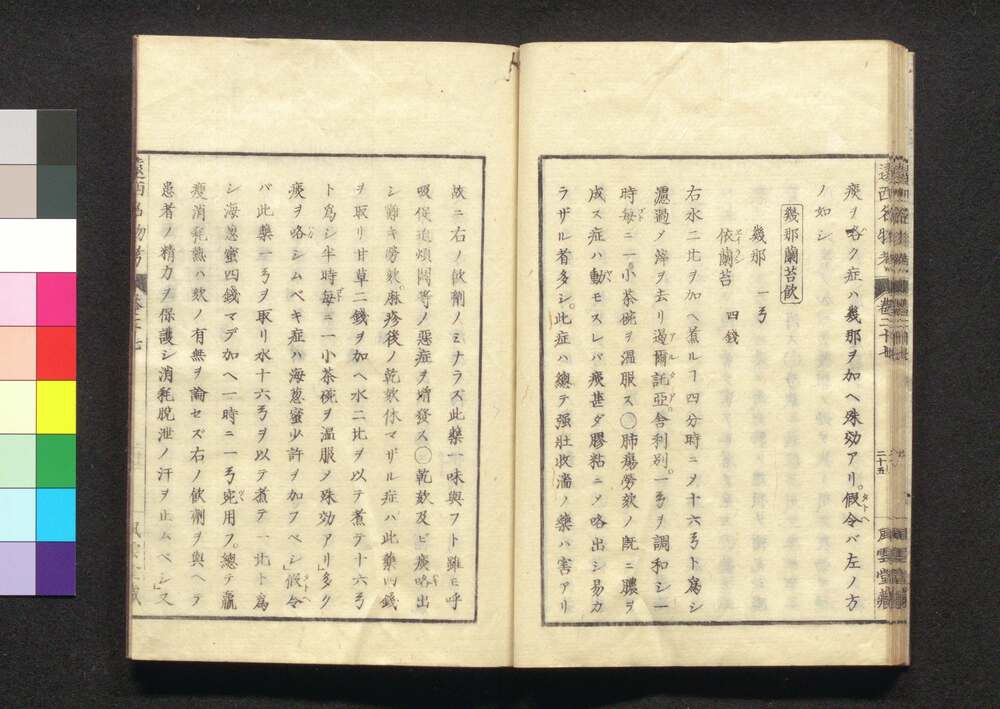 痰ヲ咯ク症ハ幾那ヲ加ヘ殊効アリ。假令バ左ノ方
ノ如シ
幾那蘭苔飲
幾那 一弓
依蘭苔 四錢
右水二比ヲ加ヘ煮ルヿ四分時ニメ十六弓ト爲シ
濾過メ滓ヲ去リ遏爾託亞舎利別。一弓ヲ調和シ一
時每ニ一小茶碗ヲ温服ス〇肺瘍勞欬ノ既ニ膿ヲ
成ス症ハ動モスレバ痰甚ダ膠粘ニメ咯出シ易カ
ラザル者多シ。此症ハ總テ強壯收濇ノ藥ハ害アリ
遠西名物考
卷二十七
二十五
風雲堂藏
故ニ右ノ飲劑ノミナラズ此藥一味與フト雖モ呼
吸促迫煩悶等ノ惡症ヲ增發ス〇乾欬及ビ痰咯出
シ難キ勞欬。麻疹後ノ乾欬休マザル症ハ此藥四錢
ヲ取リ甘草二錢ヲ加ヘ水二比ヲ以テ煮テ十六弓
ト爲シ半時每ニ一小茶碗ヲ温服メ殊効アリ」多ク
痰ヲ咯シムベキ症ハ海葱蜜少許ヲ加フベシ假令
バ此藥一弓ヲ取リ水十六弓ヲ以テ煮テ一比ト爲
シ海葱蜜四錢マデ加ヘ一時ニ一弓宛用フ。總テ羸
瘦消耗熱ハ欬ノ有無ヲ論セズ右ノ飲劑ヲ與ヘテ
患者ノ精力ヲ保護シ消耗脱泄ノ汗ヲ止ムベシ」又
遠西名物考
卷二十七